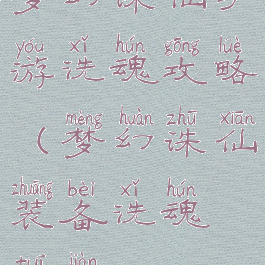 yóu xǐ hún gōng lüè
游洗魂攻略
mèng huàn zhū xiān
（梦幻诛仙
zhuāng bèi xǐ hún
装备洗魂